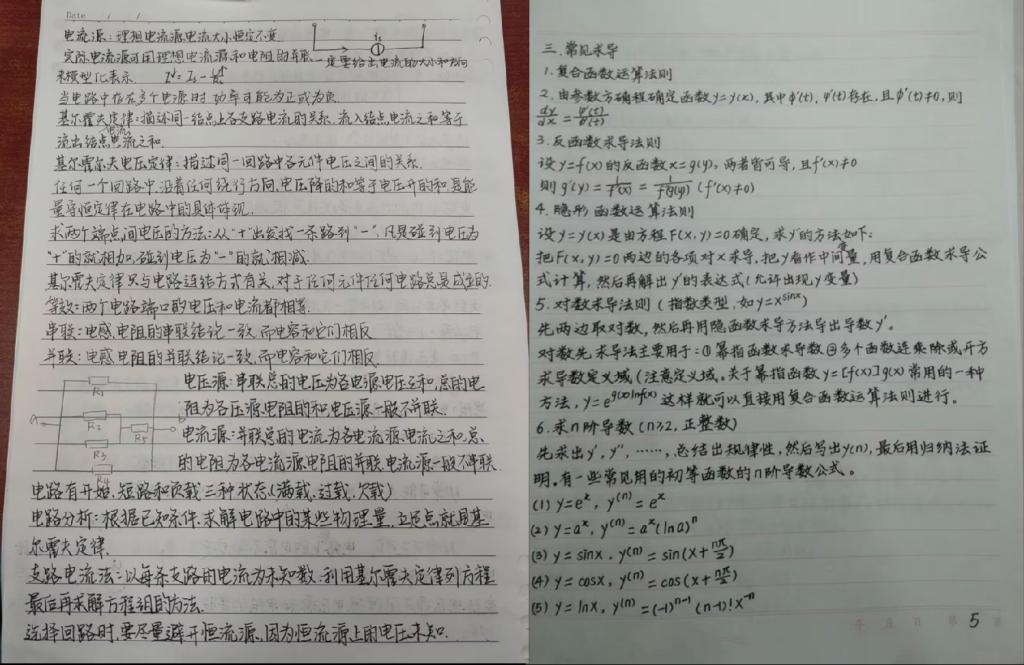 Date / /
电流源:理想电流源电流大小恒定不变
Is
实际电流源可用理想电流源和电阻的并联
一定要给出电流的大小和方向
来模型化表示
当电路中存在多个电源时功率可能为正或为负
基尔霍夫定律:描述同一结点上各支路电流的关系.流入结点电流之和等于
流出结点电流之和.
基尔霍尔夫电压定律:描述同一回路中各元件电压之间的关系.
任何一个回路中,沿着任何绕行方向,电压降的和等于电压升的和.是能
量守恒定律在电路中的具体体现.
求两个端点间电压的方法:从"+"出发找一条路到"-",凡是碰到电压为
"+"的就相加,碰到电压为"-"的就相减.
基尔霍夫定律只与电路连结方式有关,对于任何元件任何电路总是成立的.
等效:两个电路端口的电压和电流都相等.
串联:电感电阻的串联结论一致.而电容和它们相反
并联:电感电阻的并联结论一致.而电容和它们相反
R1
R2
R3
R4
R5
a
电压源:串联总的电压为各电源电压之和,总的电
阻为各压源电阻的和.电压源一般不并联.
电流源:并联总的电流为各电流源电流之和总
的电阻为各电流源电阻的并联.电流源一般不串联
电路有开始,短路和负载三种状态(满载,过载,欠载)
电路分析:根据已知条件.求解电路中的某些物理量,立足点就是基
尔霍夫定律.
支路电流法:以每条支路的电流为未知数.利用基尔霍夫定律列方程
最后再求解方程组的方法.
选择回路时,要尽量避开恒流源,因为恒流源上的电压未知.
三.常见求导
1.复合函数运算法则
2.由参数方确程确定函数y=y(x),其中φ'(t),ψ'(t)存在,且φ'(t)≠0,则
dy/dx=ψ'(t)/φ'(t)
3.反函数求导法则
设y=f(x)的反函数x=g(y),两者皆可导,且f'(x)≠0
则g'(y)=1/f'(x)=1/f'(g(y))(f'(x)≠0)
4.隐形函数运算法则
设y=y(x)是由方程F(x,y)=0确定,求y'的方法如下:
把F(x,y)=0两边的各项对x求导,把y看作中间变量,用复合函数求导公
式计算,然后再解出y'的表达式(允许出现y变量)
5.对数求导法则(指数类型,如y=x^sinx)
先两边取对数,然后再用隐函数求导方法导出导数y'。
对数先求导法主要用于:①幂指函数求导数②多个函数连乘除或开方
求导数定义域(注意定义域。关于幂指函数y=[f(x)]g(x)常用的一种
方法,y=e^g(x)lnf(x)这样就可以直接用复合函数运算法则进行。
6.求n阶导数(n≥2,正整数)
先求出y',y'',……,总结出规律性,然后写出y(n),最后用归纳法证
明。有一些常见用的初等函数的n阶导数公式。
(1)y=e^x,y^(n)=e^x
(2)y=a^x,y^(n)=a^x(lna)^n
(3)y=sinx.y^(n)=sin(x+nπ/2)
(4)y=cosx,y^(n)=cos(x+nπ/2)
(5)y=lnx,y^(n)=(-1)^n-1(n-1)!x^-n
年 月 日 第 5